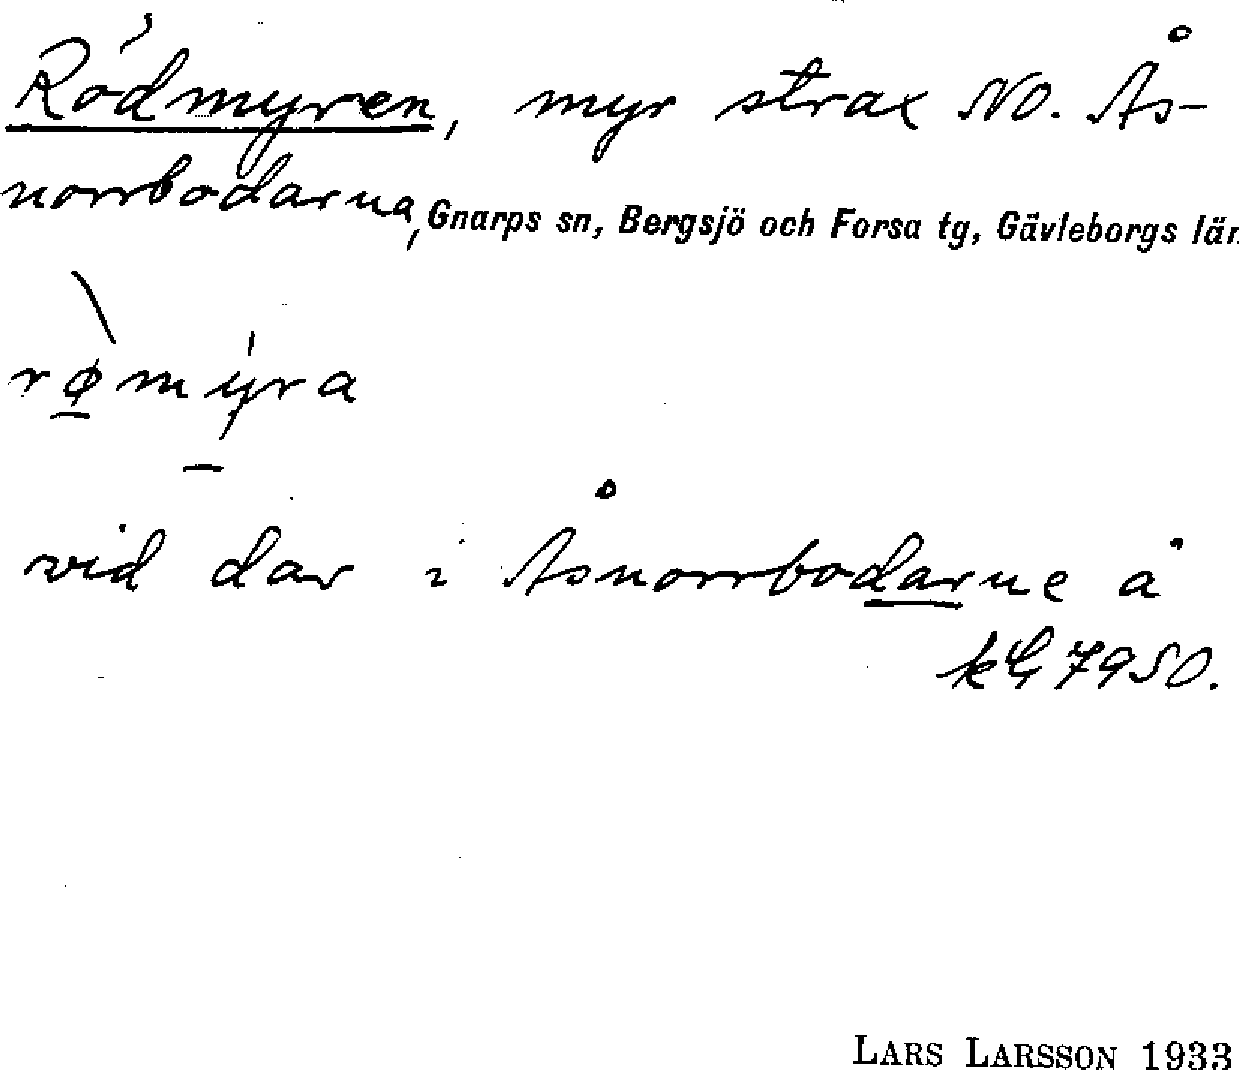 Rödmyren, myr strax NO. Ås-
norrbodarna, Gnarps sn, Bergsjö och Forsa tg, Gävleborgs län
rø̀mýra
vid dar i Åsnorrbodarne å
kG 7950.
LARS LARSSON 1933